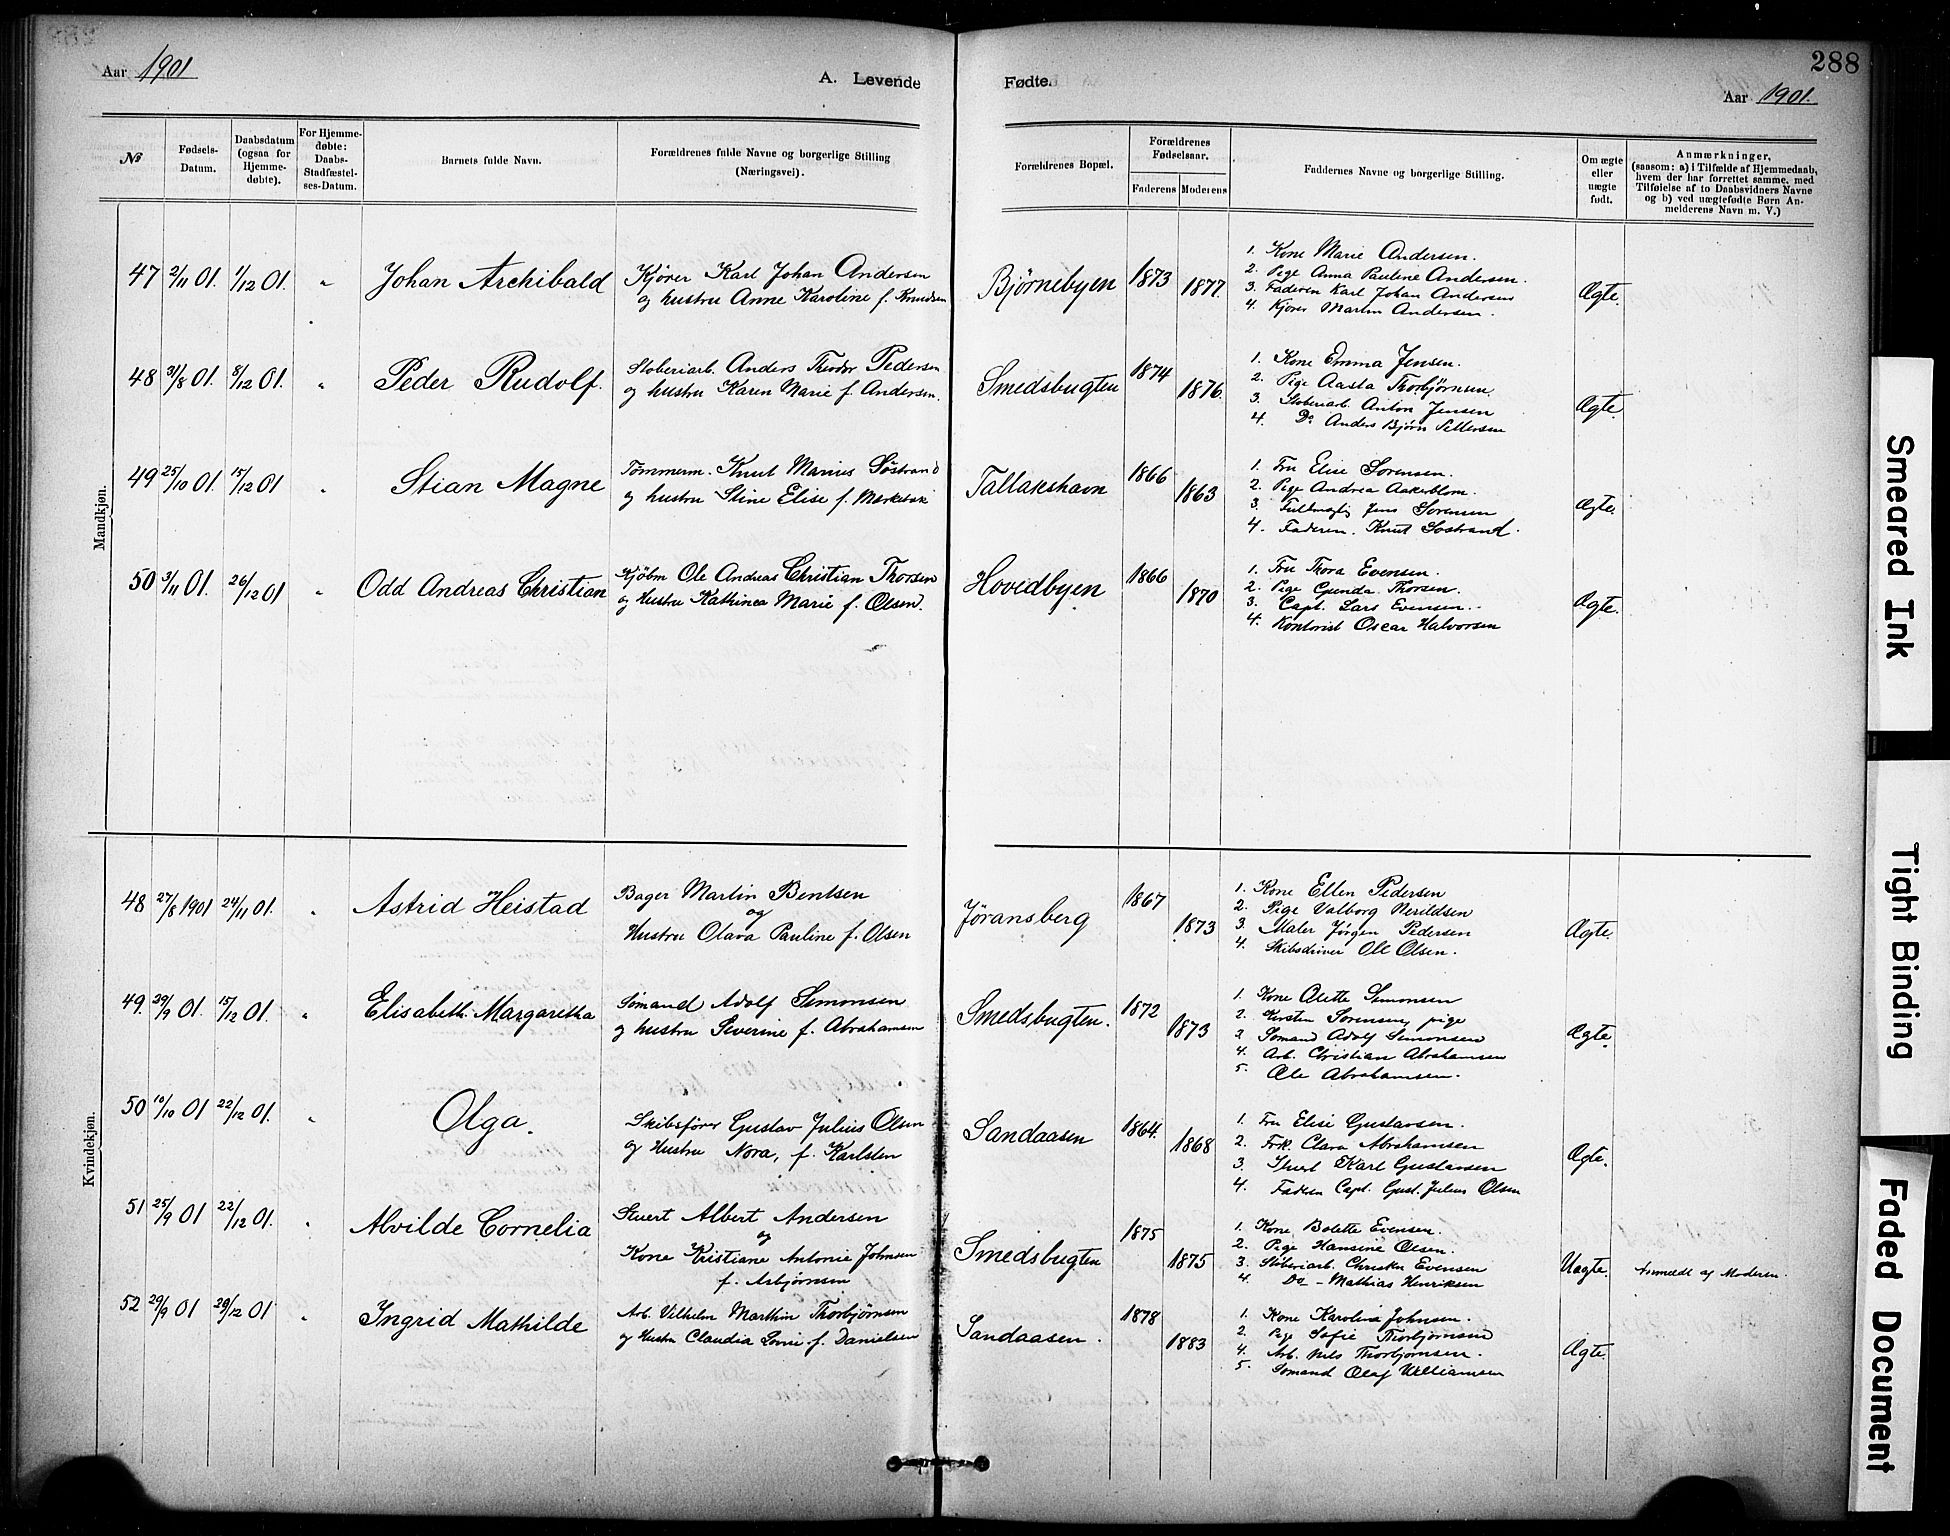 288
Aar 1901
A. Levende
Fødte.
Aar 1901.
№
Fødsels-Datum.
Daabsdatum (ogsaa for Hjemme-døbte).
For Hjemme-døbte: Daabs-Stadfæstel-ses-Datum.
Barnets fulde Navn.
Forældrenes fulde Navne og borgerlige Stilling (Næringsvei).
Forældrenes Bopæl.
Forældrenes Fødselsaar.
Faderens Moderens
Faddernes Navne og borgerlige Stilling.
Om ægte eller uægte født.
Anmærkninger, (saasom: a) i Tilfælde af Hjemmedaab, hvem der har forrettet samme, med Tilføielse af to Daabsvidners Navne og b) ved uægtefødte Børn An-melderens Navn m. V.)
Mandkjøn.
47 2/11 01. 1/12 01. " Johan Archibald
Kjører Karl Johan Andersen
og hustru Anne Karoline f. Knudsen
Bjørnebyen 1873 1877.
1. Kone Marie Andersen.
2. Pige Anna Pauline Andersen.
3. Faderen Karl Johan Andersen
4. Kjører Martin Andersen.
Ægte.
48 31/8 01. 8/12 01. " Peder Rudolf.
Støberiarb. Anders Theodor Pedersen
og hustru Karen Marie f. Andersen.
Smedsbugten 1874 1876.
1. Kone Emma Jensen.
2. Pige Aasta Thorbjørnsen.
3. Støberiarb. Anton Jensen
4. Do Anders Bjørn Pettersen
Ægte.
49 25/10 01. 15/12 01 " Stian Magne
Tømmerm. Knut Marius Søstrand
og hustru Stine Elise f.
Tallakshavn 1866 1863
1. Fru Elise Sørensen.
2. Pige Andrea Aakerblom.
3. Fuldmægtig Jens Sørensen
4. Faderen. Knut Søstrand.
Ægte.
50 3/11 01. 26/12 01 " Odd Andreas Christian
Kjøbm Ole Andreas Christian Thorsen
og Hustru Kathinca Marie f. Olsen.
Hovedbyen 1866 1870
1. Fru Thora Evensen.
2. Pige Gunda Thorsen.
3. Capt. Lars Evensen.
4. Kontorist Oscar Halvorsen
Ægte.
Kvindekjøn.
48 27/8 1901 24/11 01. " Astrid Heistad
Bager Martin Bentsen
og
Hustru Olava Pauline f. Olsen
Jøransberg 1867 1873
1. Kone Ellen Pedersen
2. Pige Valborg Nerildsen
3. Maler Jørgen Pedersen
4. Skibsdriver Ole Olsen.
Ægte.
49. 29/9 01. 15/12 01. " Elisabeth Margaretha
Sømand Adolf Simonsen
og hustru Severine f. Abrahamsen
Smedsbugten. 1872 1873
1. Kone Olette Simonsen
2. Kirsten Sørensen, pige
2 Sømand Adolf Simonsen
4. Arb. Christian Abrahamsen
5. Ole Abrahamsen.
Ægte.
50 10/10 01 22/12 01. " Olga.
Skibsfører Gustav Julius Olsen
og Hustru Nora, f. Karlsen
Sandaasen 1864. 1868
1. Fru Elise Gustavsen.
2. Frk. Clara Abrahamsen
3. Stuert Karl Gustavsen
4. Faderen Capt. Gust. Julius Olsen
Ægte.
51 25/9 01 22/12 01. " Alvilde Cornelia
Stuert Albert Andersen
og
Kone Kristiane Antonie Johnsen
f. Asbjørnsen
Smedsbugten 1875 1875
1. Kone Bolette Evensen.
2. Pige Hansine Olsen.
3. Støberiarb. Christen Evensen
4. Do - Mathias Henriksen
Uægte.
Anmeldt af Moderen.
52 29/9 01 29/12 01. " Ingrid Mathilde
Arb. Vilhelm Marthin Thorbjørnsen
og Hustru Claudia Lovise f. Danielsen
Sandaasen. 1878 1883
1. Kone Karoline Johnsen.
2. Pige Sofie Thorbjørnsen
4. Arb. Nils Thorbjørnsen.
5. Sømand Olaf Williamsen
Ægte.
Smeared Ink
Tight Binding
Faded Document